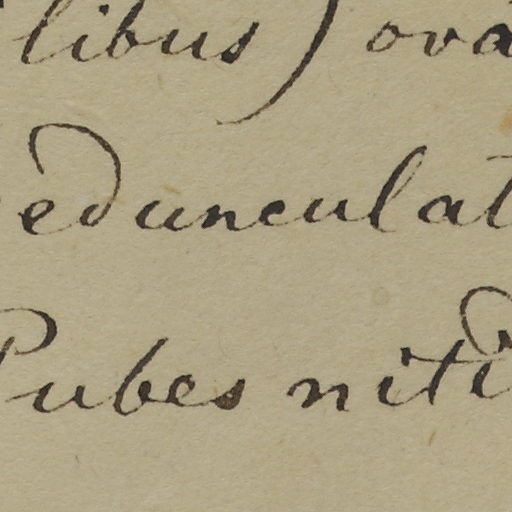 libus) ova
edunculat
Pubes nitid